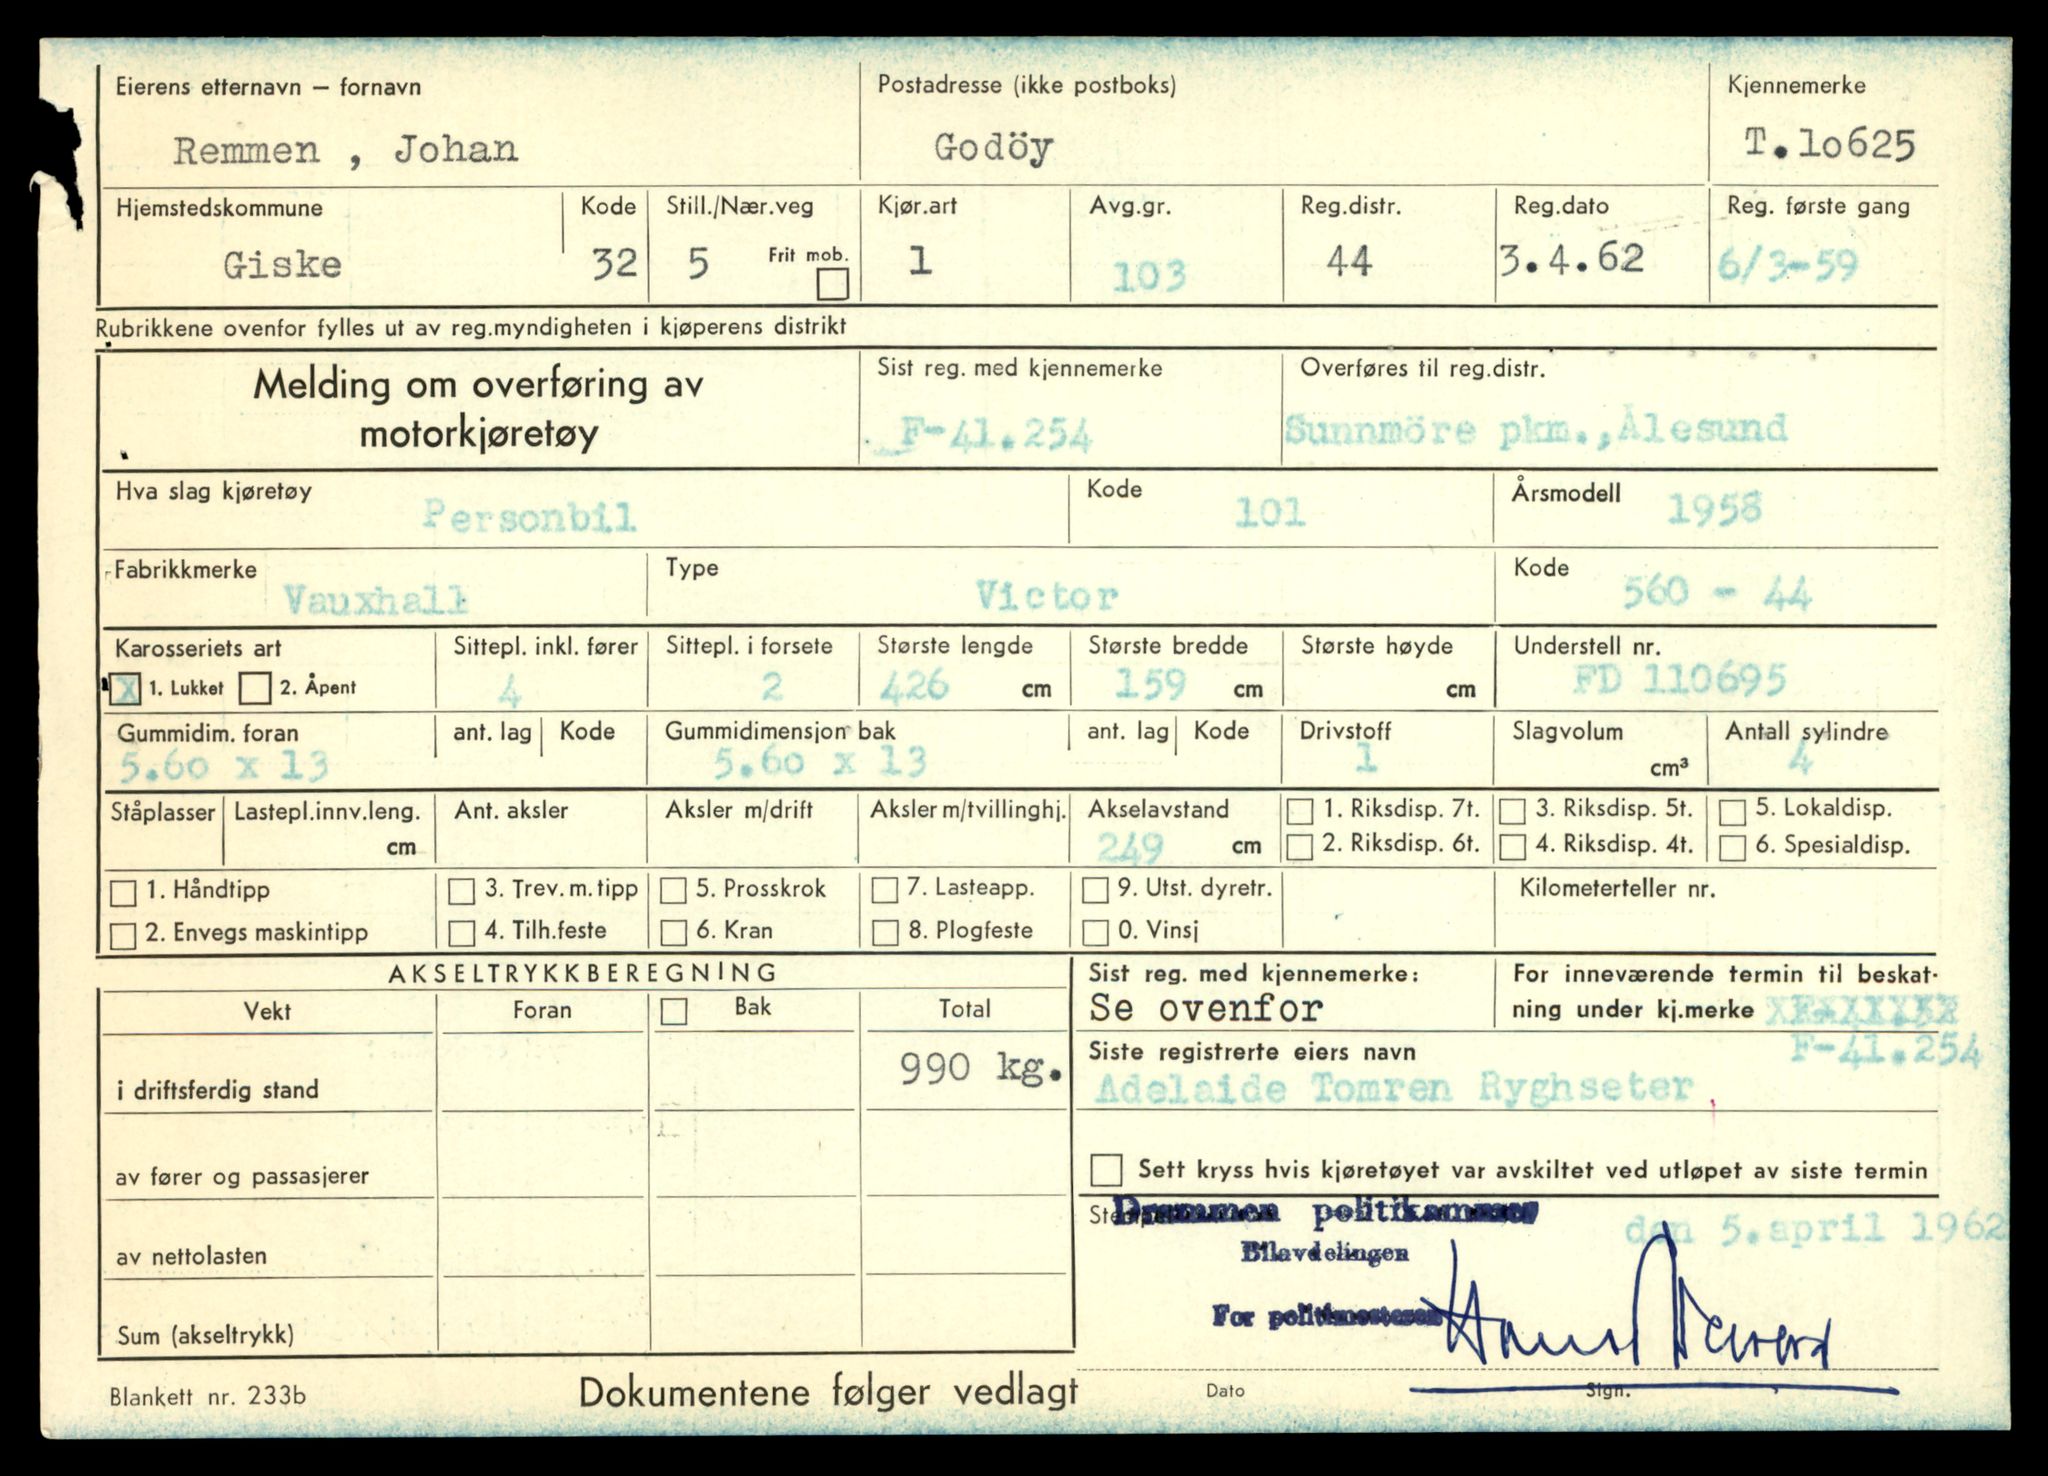 Eierens etternavn – fornavn Postadresse (ikke postboks) Kjennemerke
Remmen , Johan Godöy T.lo625
Hjemstedskommune Kode Still./Nær.veg Kjør.art Avg.gr. Reg.distr. Reg.dato Reg. første gang
Giske 32 5 Frit mob. 1 103 44 3.4.62 6/3-59
Rubrikkene ovenfor fylles ut av reg.myndigheten i kjøperens distrikt
Melding om overføring av Sist reg. med kjennemerke Overføres til reg.distr.
motorkjøretøy F-41.254 Sunnmöre pkm.,Ålesund
Hva slag kjøretøy Kode Årsmodell
Personbil 101 1958
Fabrikkmerke Type Kode
Vauxhall Victor 560 - 44
Karosseriets art Sittepl. inkl. fører Sittepl. i forsete Største lengde Største bredde Største høyde Understell nr.
X 1. Lukket 2. Åpent 4 2 426 cm 159 cm cm FD 110695
Gummidim. foran ant. lag Kode Gummidimensjon bak ant. lag Kode Drivstoff Slagvolum Antall sylindre
5.60 x 13 5.60 x 13 1 cm³ 4
Ståplasser Lastepl.innv.leng. Ant. aksler Aksler m/drift Aksler m/tvillinghj. Akselavstand 1. Riksdisp. 7t. 3. Riksdisp. 5t. 5. Lokaldisp.
cm 249 cm 2. Riksdisp. 6t. 4. Riksdisp. 4t. 6. Spesialdisp.
1. Håndtipp 3. Trev. m. tipp 5. Prosskrok 7. Lasteapp. 9. Utst. dyretr. Kilometerteller nr.
2. Envegs maskintipp 4. Tilh.feste 6. Kran 8. Plogfeste 0. Vinsj
AKSELTRYKKBEREGNING Sist reg. med kjennemerke: For inneværende termin til beskat-
Vekt Foran Bak Total Se ovenfor ning under kj.merke
F-41.254
Siste registrerte eiers navn
i driftsferdig stand 990 kg. Adelaide Tomren Ryghseter
av fører og passasjerer Sett kryss hvis kjøretøyet var avskiltet ved utløpet av siste termin
Stempel Drammen politikammer den 5.april 1962
av nettolasten Bilavdelingen
For politimesteren
Sum (akseltrykk)
Blankett nr. 233b Dokumentene følger vedlagt Dato Sign.